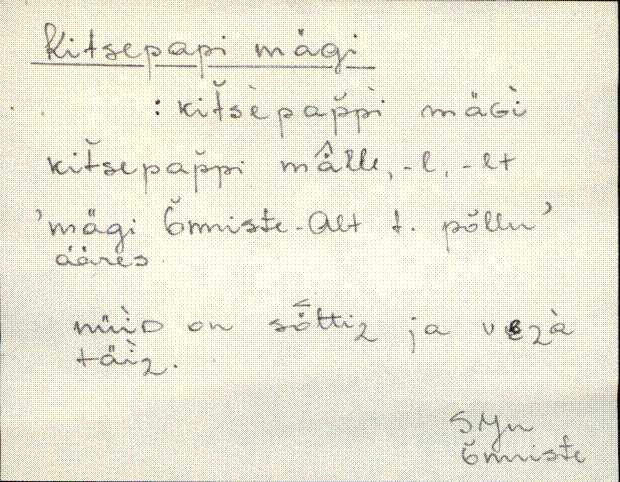 Kitsepapi mägi
: kit̆sèpap̆pì mäGì
kit̆sepap̆pi mä̂lle, -l, -lt
'mägi Õmniste-Alt t. põllu'
ääres
nüìD on sõttiz ja vezà
täìz.
SMn
Õmniste